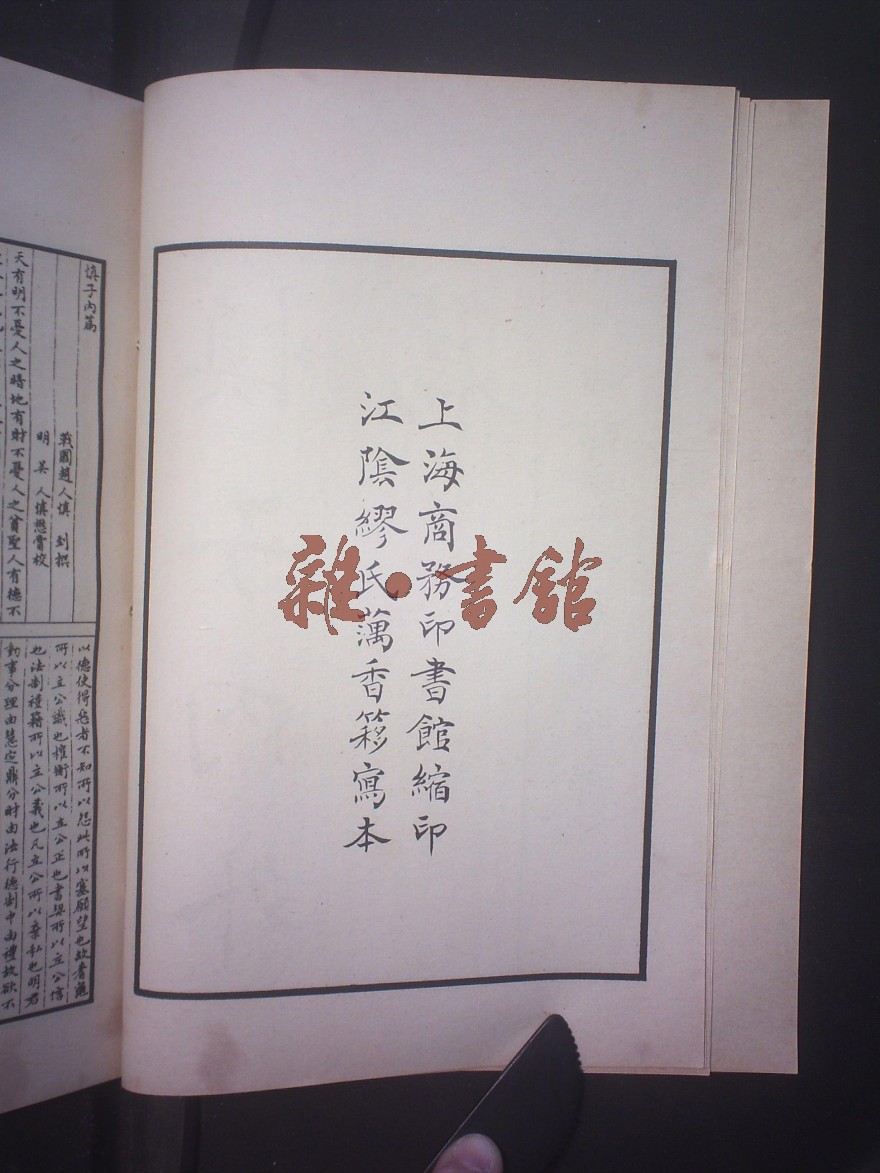 上海商務印書館縮印
江陰繆氏藕香簃寫本
雜·書館
慎子內篇
戰國趙人慎 到撰
明 吳 人慎懋賞校
天有明不憂人之暗地有財不憂人之貧聖人有德不
以德使得惡者不知所以怨此所以塞願望也故蓍龜
所以立公識也權衡所以立公正也書契所以立公信
也法制禮籍所以立公義也凡立公所以棄私也明君
動事分理由慧定賞分財由法行德制中由禮故欲不